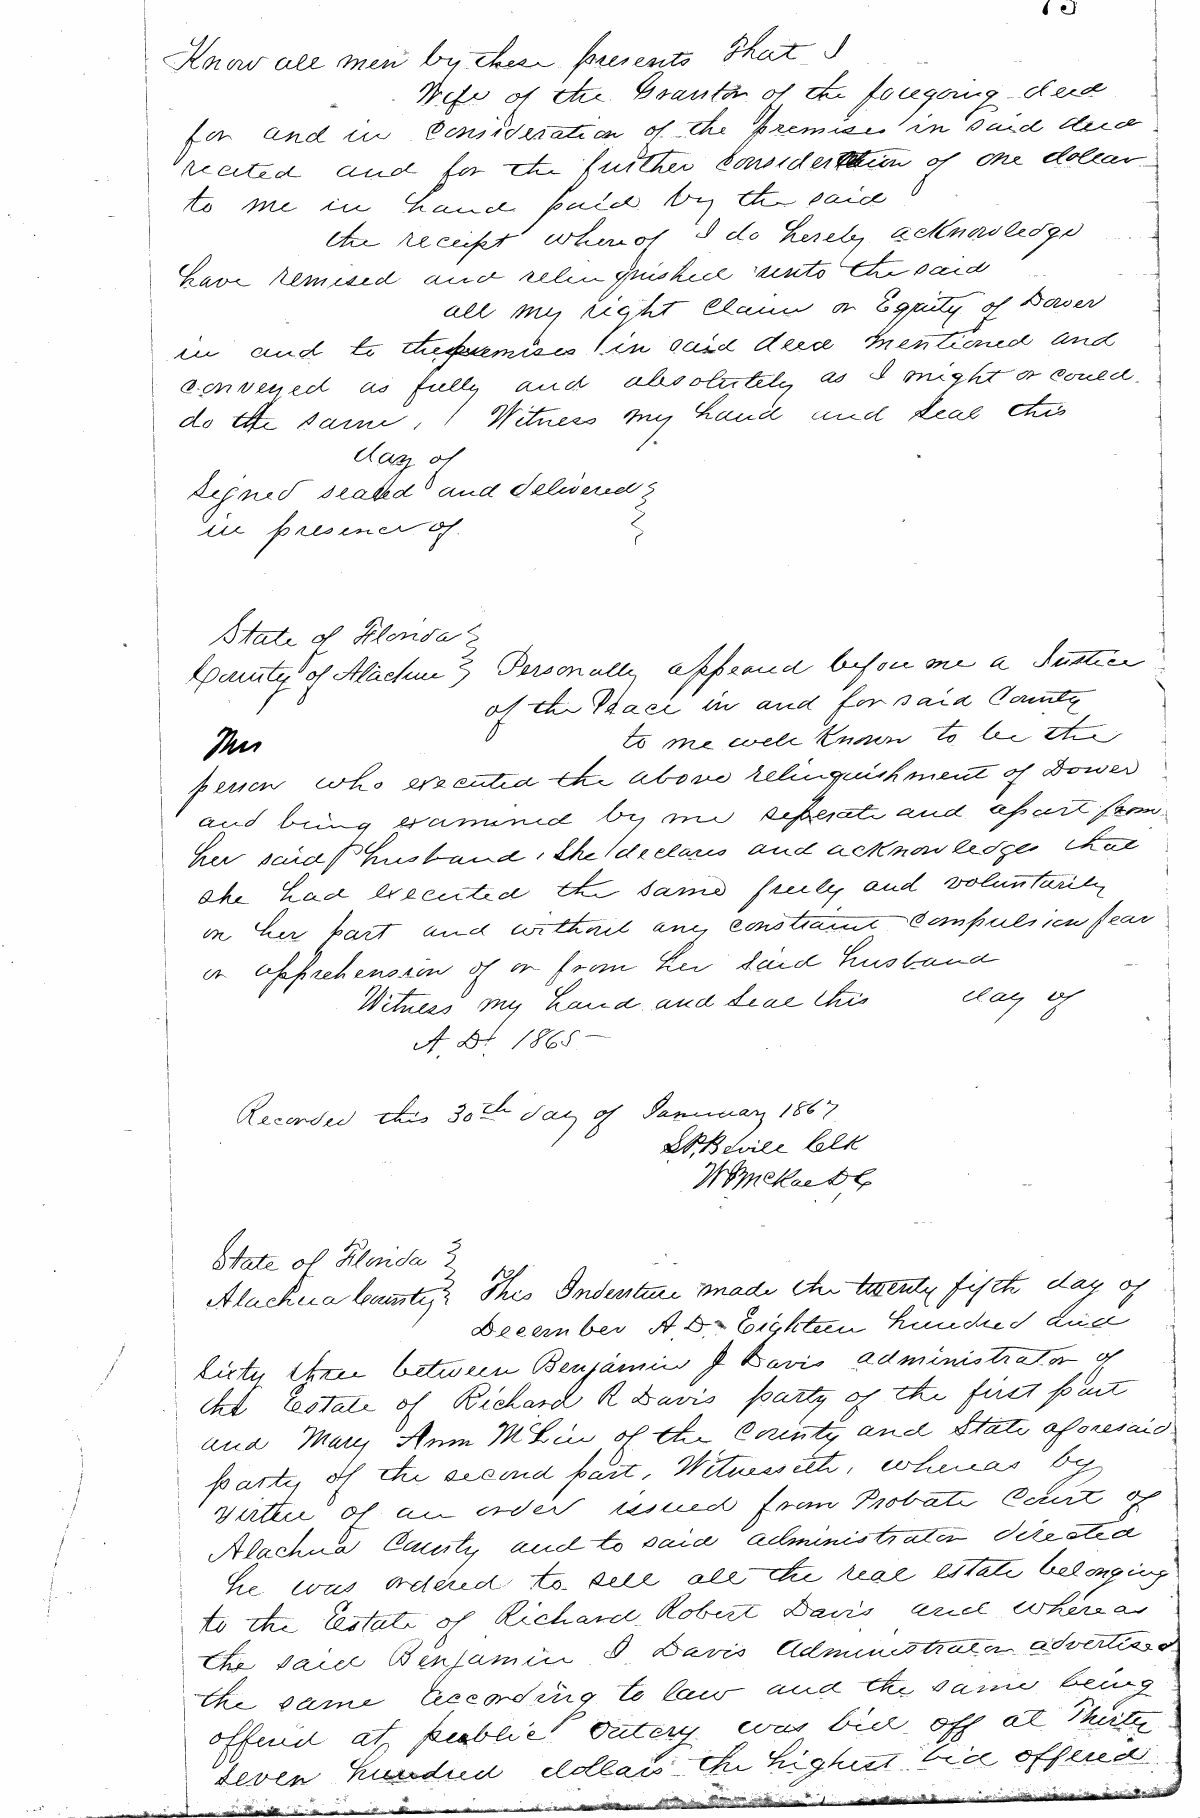 Know all men by these presents That I
Wife of the Grantor of the foregoing deed
for and in consideration of the premises in said deed
recited and for the further consideration of one dollar
to me in hand paid by the said
the receipt whereof I do hereby acknowledge
have remised and relinquished unto the said
all my right Claim or Equity of Dower
in and to the premises in said deed mentioned and
conveyed as fully and absolutely as I might or could
do the same, Witness my hand and Seal this
day of
Signed sealed and delivered }
in presence of }
State of Florida }
County of Alachua } Personally appeared before me a Justice
of the Peace in and for said County
Mrs to me well Known to be the
person who executed the above relinquishment of Dower
and being examined by me seperate and apart from
her said husband, She declares and acknowledges that
she had executed the same freely and voluntarily
on her part and without any constraint Compulsion fear
or apprehension of or from her said husband
Witness my hand and Seal this day of
A. D. 1865
Recorded this 30th day of January 1867
S.P. Bevill Clk
W McRae D C
State of Florida }
Alachua County } This Indenture made the twenty fifth day of
December A.D. Eighteen hundred and
Sixty three between Benjamin J Davis administrator of
the Estate of Richard R Davis party of the first part
and Mary Ann McLin of the County and State aforesaid
party of the second part, Witnesseth, whereas by
virtue of an order issued from Probate Court of
Alachua County and to said administrator directed
he was ordered to sell all the real estate belonging
to the Estate of Richard Robert Davis and whereas
the said Benjamin J Davis Administrator advertised
the same according to law and the same being
offered at public outcry was bid off at Thirty
seven hundred dollars the highest bid offered